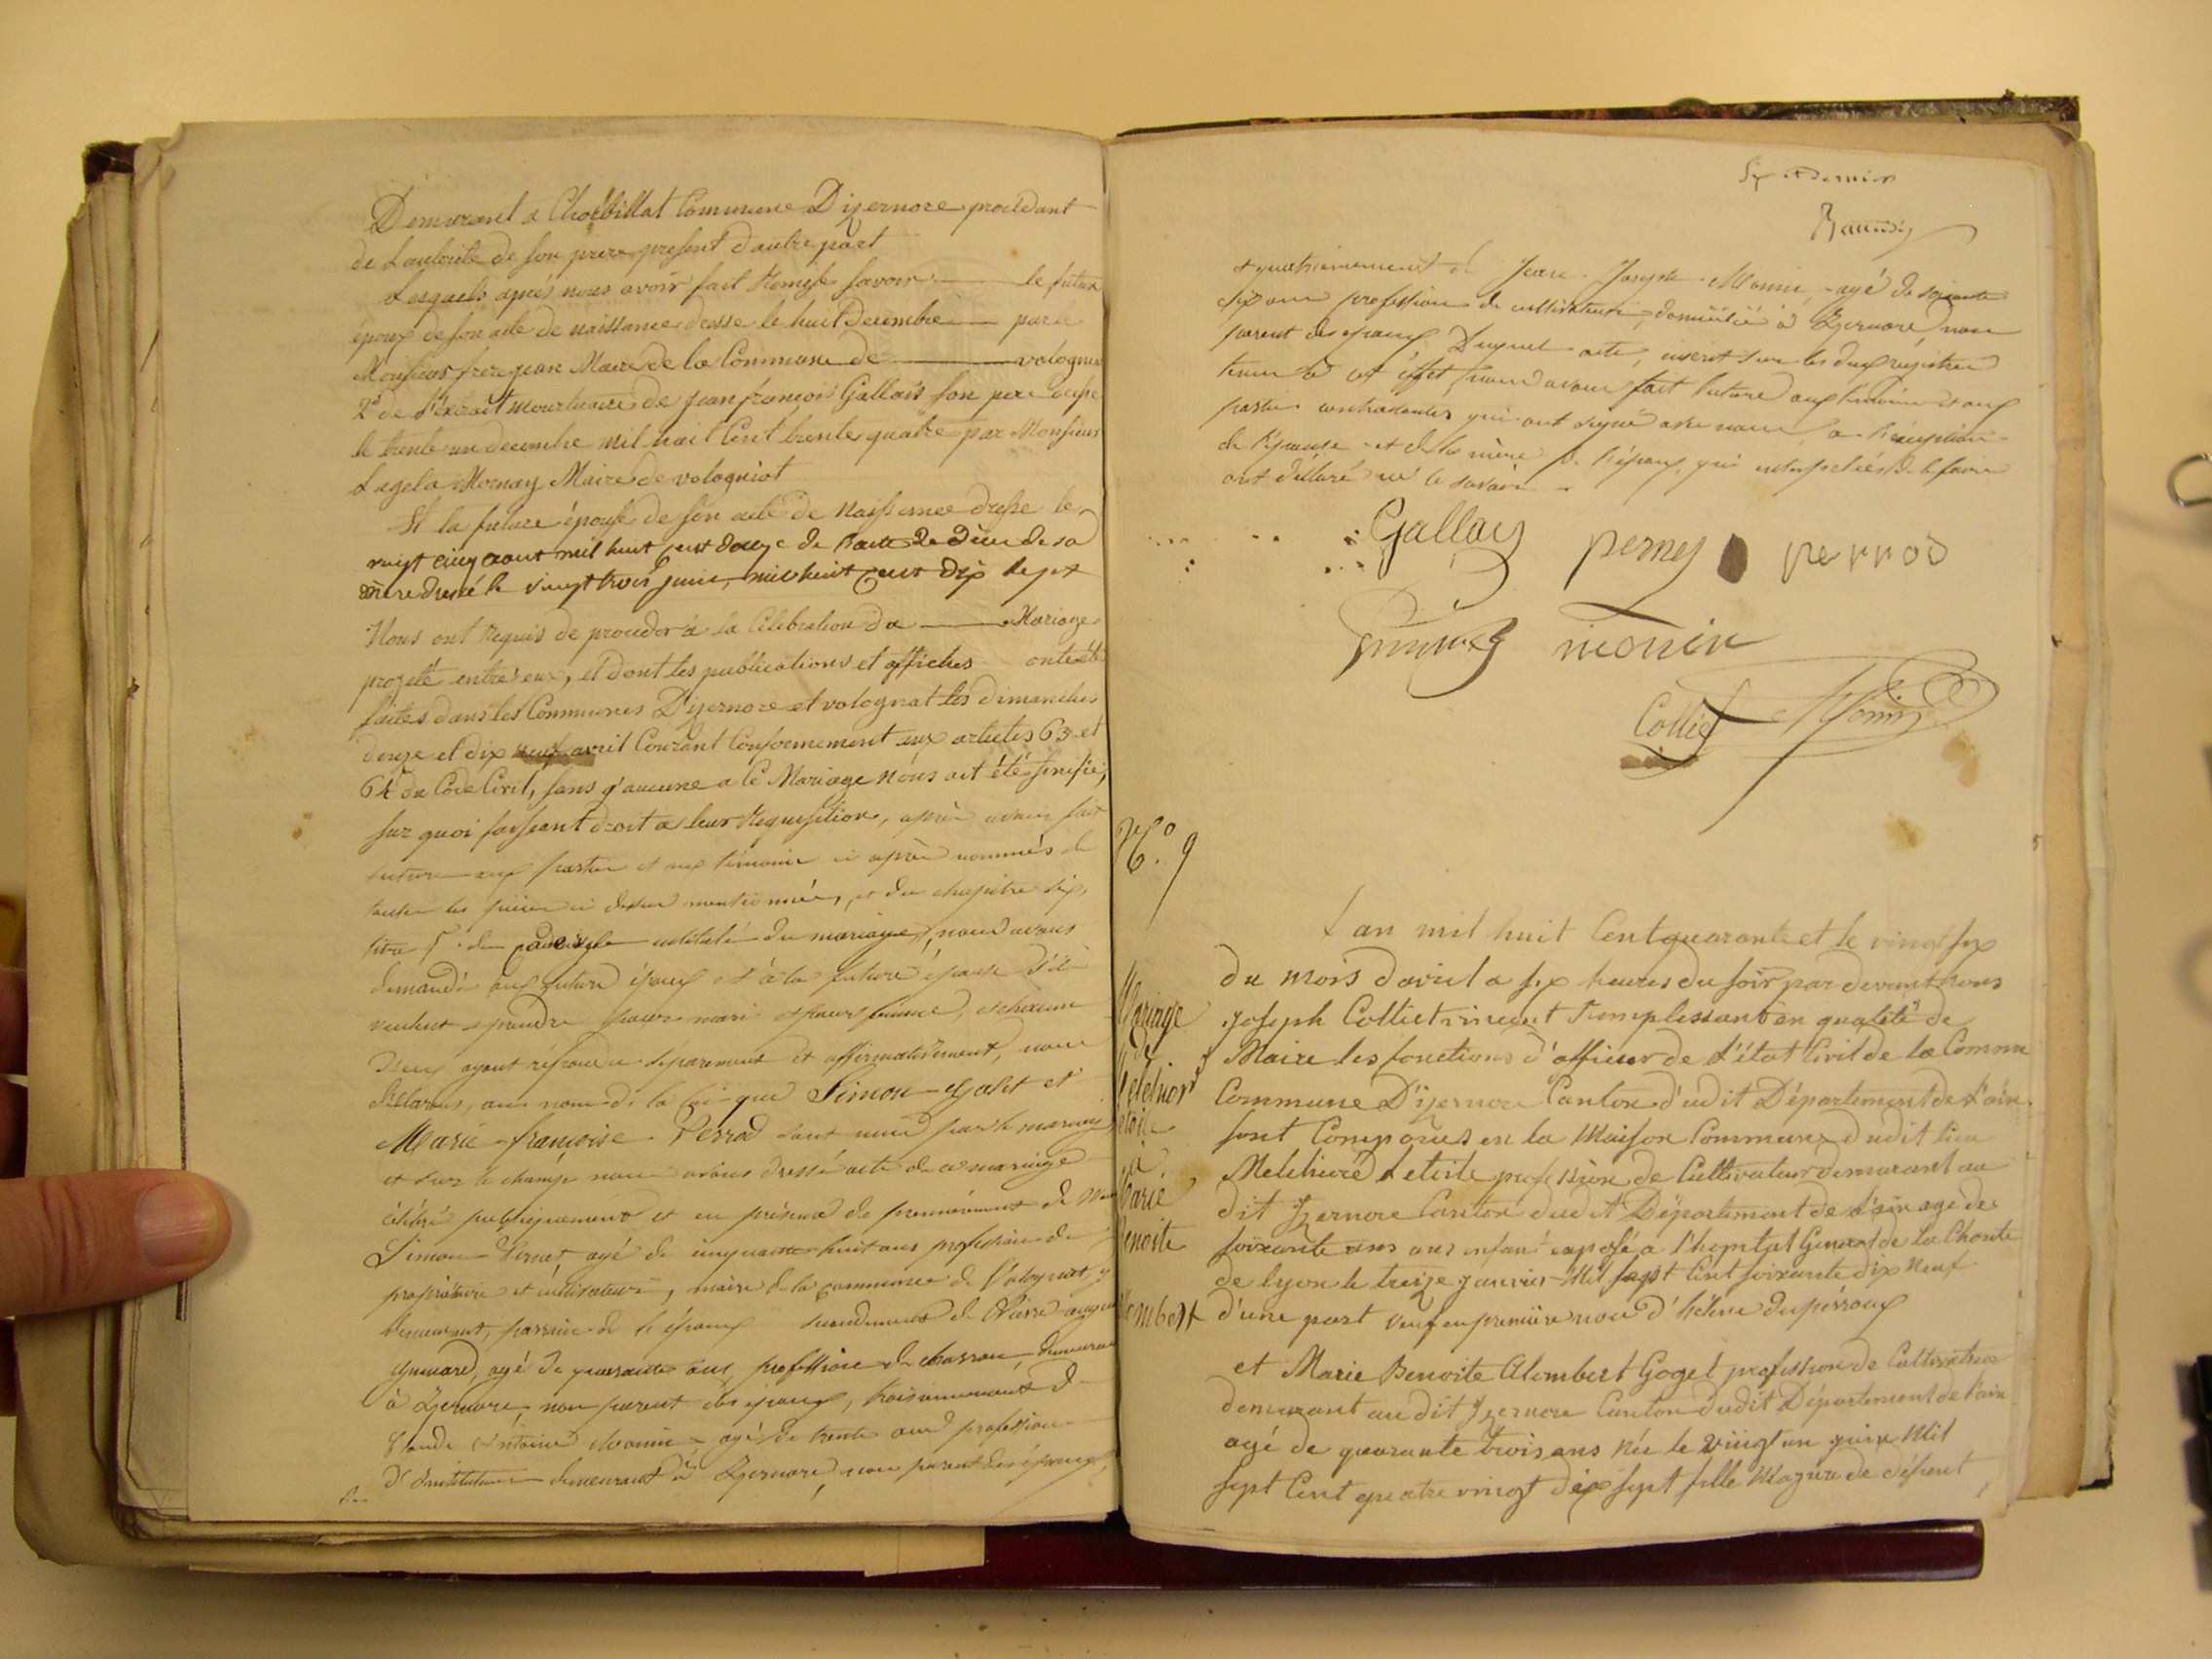 Demurant a Chorbillat Commune Dijernore procedant
de Lautorité de son perre present dautre part
Lesquels après nous avoir fait Remise savoir le futur
époux de son acte de naissance dressé le huit Decembre par
Monsieur frerejean Maire de la Commune de volognat
2° de l'extrait mourtuaire de jean françois Gallais son pere
le trente un decembre mil huit Cent trente quatre par Monsieur
Mornay Maire de volognat
Et la future épouse de son acte de Naissance dressé le
vingt cinq aout mil huit cent douze de l'acte de décès de sa
mère dressé le vingt trois juin mil huit cent dix sept
Nous ont Requis de proceder à la Célébration du Mariage
projeté entre eux, et dont les publications et affiches ont été
faites dans les Communes Dijernore et volognat les dimanches
douze et dix neuf avril Courant Conformement aux articles 63 et
64 du Code Civil, sans q'aucune a Ce Mariage nous ait été
sur quoi faisant droit a leur Requisition, après avoir fait
lecture aux parties et aux témoins ci après nommés de
toutes les pièces ci dessus mentionnées, et du chapitre six,
titre 5 du Code civil intitulé du mariage, nous avons
demandé aux futurs époux et à la future épouse s'ils
veulent prendre pour mari et pour femme, et chacun
d'eux ayant répondu séparement et affirmativement, nous
déclarons, au nom de la loi que Simon Galet et
Marie françoise Perrod sont unis par le mariage
et sur le champ nous avons dressé acte de ce mariage
célébré publiquement et en présence de premièrement de
Simon Vernet, agé de cinquante huit ans profession de
propriétaire et cultivateur, maire de la commune de Volognat y
demeurant, parrain de l'époux secondement de Pierre
agé de quarante ans, profession de charron, demeurant
à Izernore, non parent des époux, troisiemement de
Claude Antoine Monin agé de trente ans profession
d'instituteur demeurant à Izernore, non parent des époux,
Six et dernier
et quatriemement de Jean Joseph Monin, agé de soixante
six ans profession de cultivateur, domicilié à Izernore, non
parent des époux Duquel acte, inscrit sur les deux registres
tenus à cet effet, nous avons fait lecture aux témoins et aux
parties contractantes qui ont signé avec nous, a l'exception
de l'épouse et de la mère de l'époux, qui interpellées de le faire
ont déclaré ne le savoir.
Gallay perney perrod
monin
Colliet Monin
N.° 9
L an mil huit Cent quarante et le vingt six
du mois davril a six heures du soir par devant Nous
Joseph Colliet remplissant en qualité de
Maire les fonctions d'officier de l'état Civil de la Commu
Commune D'ijernore Canton dudit Département de l'ain
sont Comparus en la Maison Commune dudit lieu
Melchior Letoile profession de Cultivateur demurant au
dit Izernore Canton dudit Département de l'ain agé de
soixante ans enfant exposé a l'hopital General de la Charité
de lyon le treize janvier Mil sept Cent soixante dix Neuf
d'une part veuf en premiere noce d'hélène duperroux
et Marie Benoite Alombert Goget profession de Cultivatrice
demurant au dit Izernore Canton dudit Département de l'ain
agé de quarante trois ans née le vingt un juin Mil
sept Cent quatre vingt dix sept fille Majeure de défunt
Mariage
de
Melchior
Letoile
et
Marie
Benoite
Alombert